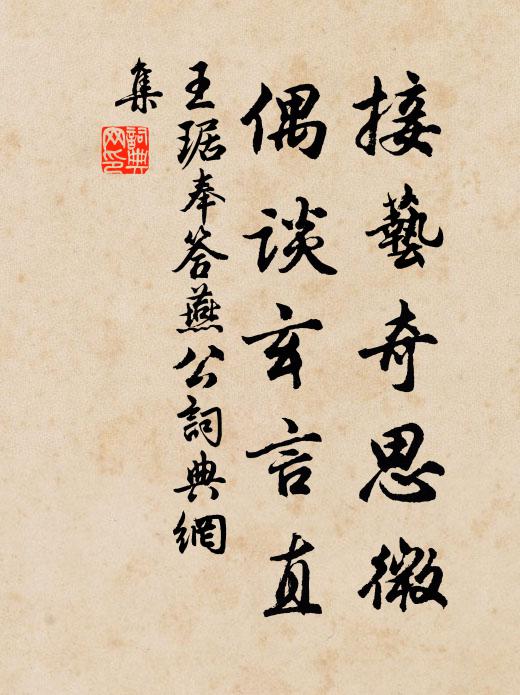 接藝奇思微
偶談玄言直
王琚奉答燕公詞典網
集
詞典
网印